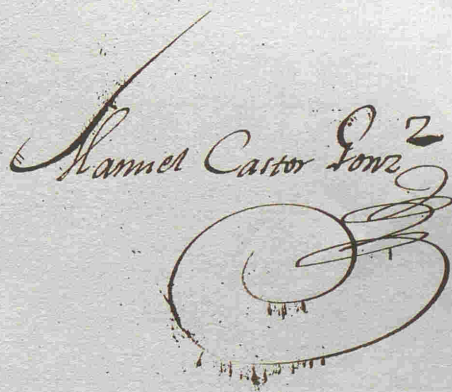 Manuel Castor Gonz^z